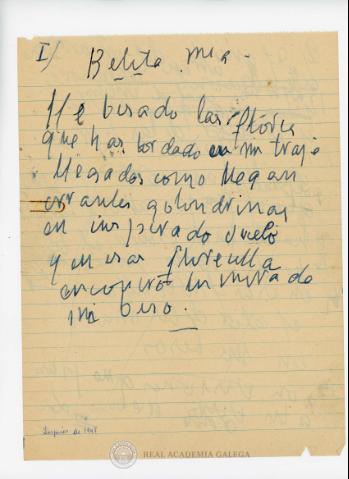 I/
Belita mia.
He besado las flores
que has bordado en mi traje
llegadas como llegan
errantes golondrinas
en inspirado vuelo
y en esas florecilla
encontró tu mirada
mi beso.
Despues de 1948
REAL ACADEMIA GALEGA